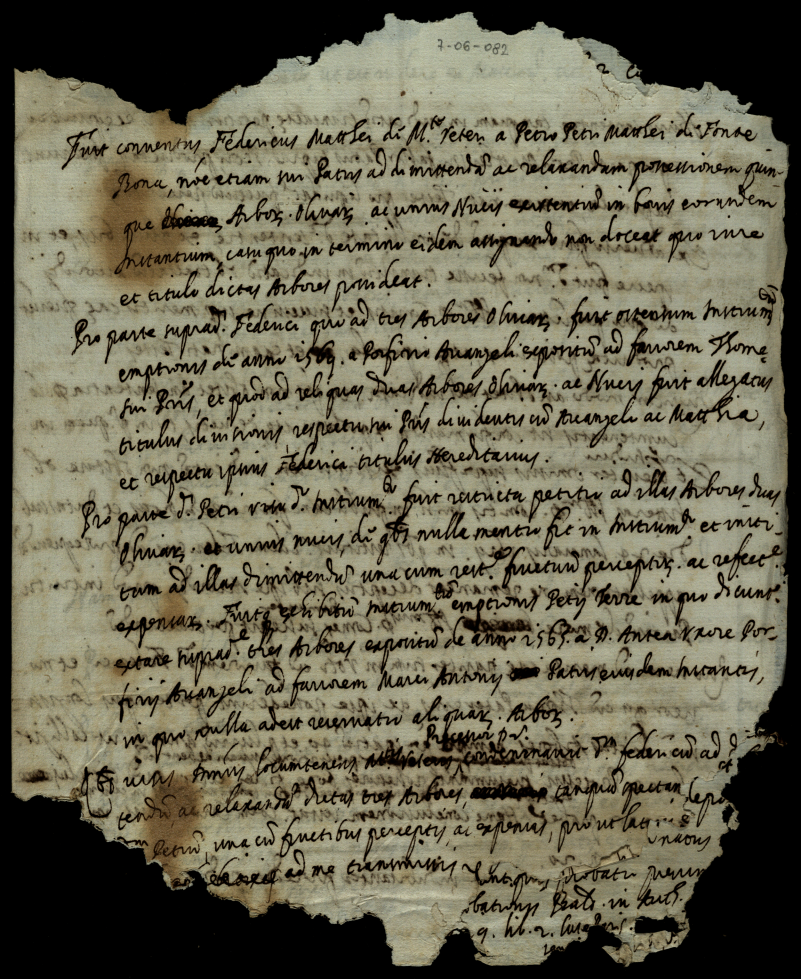 7-06-082
2
Fuit conventus Federicus Matthei de M.te veteri a Petro Petri Matthei de Fonte
Bona, noe etiam sui Patris ad dimittendũ ac relaxandam possessionem quin-
que Arboꝝ. Olivaꝝ ac unius Nucis existentiũ in bonis eorundem
Instantium, casu quo in termino eidem assignando non doceat quo iure
et titulo dictas Arbores possideat.
Pro parte suprad.i Federici quo ad tres Arbores Olivaꝝ. fuit ostensum Instrum.tũ
emptionis de anno a Porfirio Avangeli expositũ ad favorem Thome
sui Pris, et quod ad reliquas duas Arbores Olivaꝝ. ac Nucis fuit allegatus
titulus divisionis respectu sui Pris dividentis cũ Avangelo ac Matthia,
et respectu ipsius Federici titulus Hereditarius.
Pro parte d.i Petri viso d.o Instrum.to fuit restricta petitio ad illas Arbores duas
Olivaꝝ. et unius nucis, de qbs nulla mentio fit in Instrum.to et insti-
tum ad illas dimittendũ una cum rest.ne fructuũ perceptoꝝ. ac refect.e
expensaꝝ. Fuitq exhibitũ Instrum.tũ emptionis Petij Terre in quo dicunt.r
extare suprad.e tres Arbores expositũ de anno 1565. a D. Antea Uxore Por-
firij Avangeli ad favorem Marci Antonij Patris eiusdem Instantis,
in quo nulla adest reservatio aliquaꝝ. Arboꝝ.
Processus p.s.
visis locumtenens condemnavit d.m federicũ ad d
tendũ, ac relaxandũ dictas tres Arbores, tanquã spectan
Petriũ una cũ fructibus perceptis, ac expensis, prout lat
ad me transmissis
antiquis, probatio
bationis Bald. in Auth.
9. lib. 2.